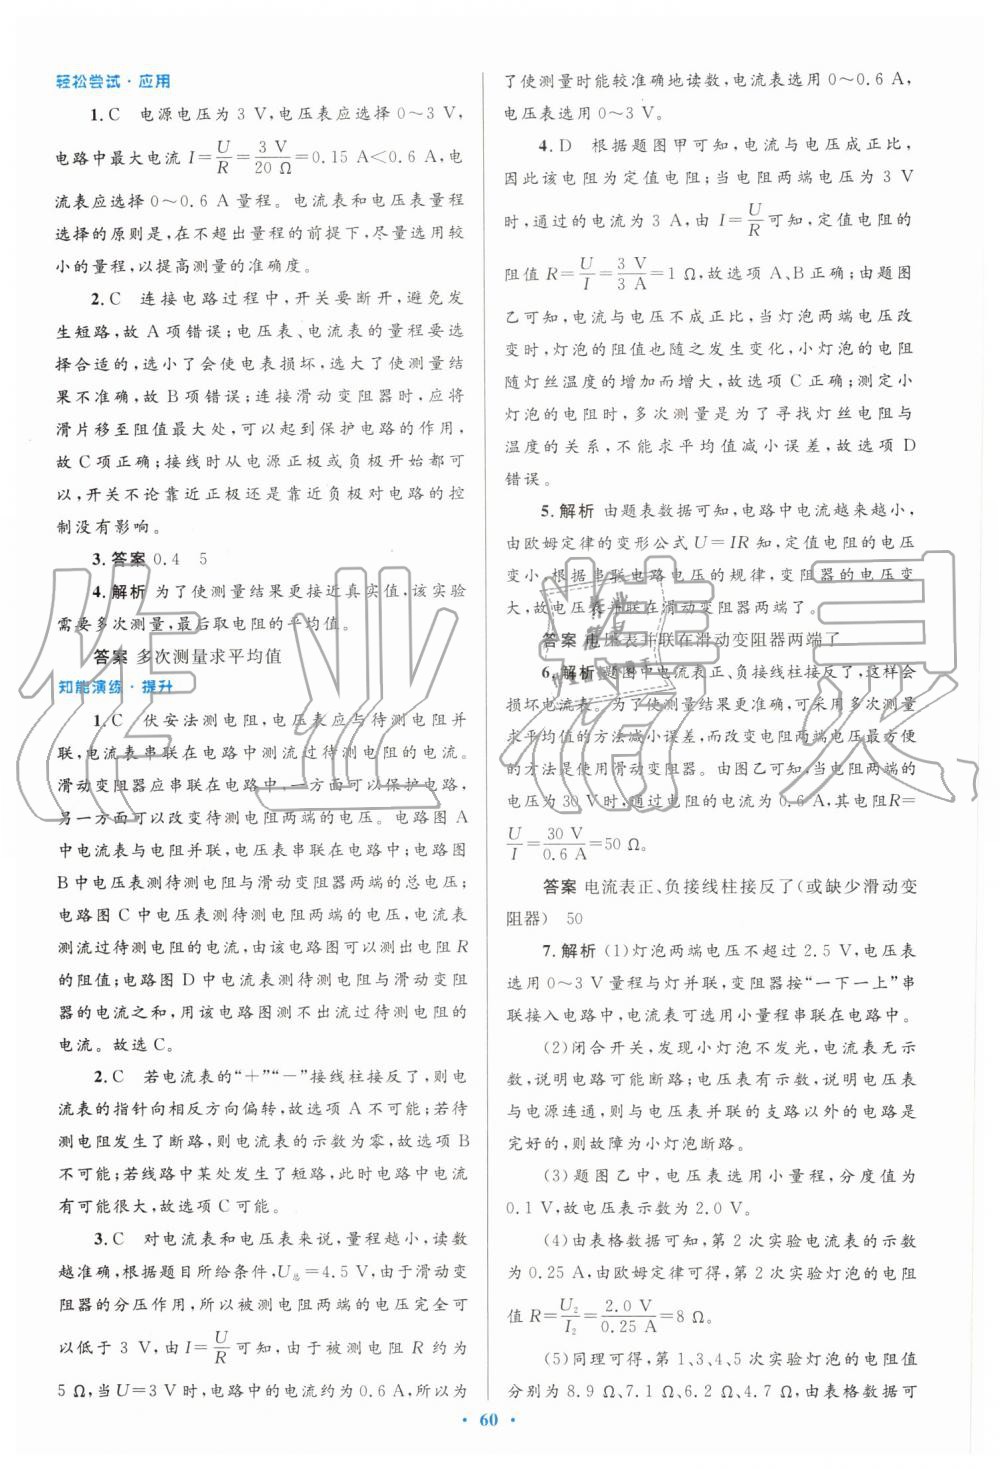 轻松尝试·应用
1.C 电源电压为 3 V,电压表应选择 0～3 V,
电路中最大电流 I=U/R=3 V/20 Ω=0.15 A<0.6 A,电
流表应选择 0～0.6 A 量程。电流表和电压表量程
选择的原则是,在不超出量程的前提下,尽量选用较
小的量程,以提高测量的准确度。
2.C 连接电路过程中,开关要断开,避免发
生短路,故 A 项错误;电压表、电流表的量程要选
择合适的,选小了会使电表损坏,选大了使测量结
果不准确,故 B 项错误;连接滑动变阻器时,应将
滑片移至阻值最大处,可以起到保护电路的作用,
故 C 项正确;接线时从电源正极或负极开始都可
以,开关不论靠近正极还是靠近负极对电路的控
制没有影响。
3.答案 0.4 5
4.解析 为了使测量结果更接近真实值,该实验
需要多次测量,最后取电阻的平均值。
答案 多次测量求平均值
知能演练·提升
1.C 伏安法测电阻,电压表应与待测电阻并
联,电流表串联在电路中测流过待测电阻的电流。
滑动变阻器应串联在电路中,一方面可以保护电路,
另一方面可以改变待测电阻两端的电压。电路图 A
中电流表与电阻并联,电压表串联在电路中;电路图
B 中电压表测待测电阻与滑动变阻器两端的总电压;
电路图 C 中电压表测待测电阻两端的电压,电流表
测流过待测电阻的电流,由该电路图可以测出电阻 R
的阻值;电路图 D 中电流表测待测电阻与滑动变阻
器的电流之和,用该电路图测不出流过待测电阻的
电流。故选 C。
2.C 若电流表的“+”“-”接线柱接反了,则电
流表的指针向相反方向偏转,故选项 A 不可能;若待
测电阻发生了断路,则电流表的示数为零,故选项 B
不可能;若线路中某处发生了短路,此时电路中电流
有可能很大,故选项 C 可能。
3.C 对电流表和电压表来说,量程越小,读数
越准确,根据题目所给条件,U总=4.5 V,由于滑动变
阻器的分压作用,所以被测电阻两端的电压完全可
以低于 3 V,由 I=U/R 可知,由于被测电阻 R 约为
5 Ω,当 U=3 V 时,电路中的电流约为 0.6 A,所以为
了使测量时能较准确地读数,电流表选用 0～0.6 A,
电压表选用 0～3 V。
4.D 根据题图甲可知,电流与电压成正比,
因此该电阻为定值电阻;当电阻两端电压为 3 V
时,通过的电流为 3 A,由 I=U/R 可知,定值电阻的
阻值 R=U/I=3 V/3 A=1 Ω,故选项 A、B 正确;由题图
乙可知,电流与电压不成正比,当灯泡两端电压改
变时,灯泡的阻值也随之发生变化,小灯泡的电阻
随灯丝温度的增加而增大,故选项 C 正确;测定小
灯泡的电阻时,多次测量是为了寻找灯丝电阻与
温度的关系,不能求平均值减小误差,故选项 D
错误。
5.解析 由题表数据可知,电路中电流越来越小,
由欧姆定律的变形公式 U=IR 知,定值电阻的电压
变小,根据串联电路电压的规律,变阻器的电压变
大,故电压表并联在滑动变阻器两端了。
答案 电压表并联在滑动变阻器两端了
6.解析 题图中电流表正、负接线柱接反了,这样会
损坏电流表。为了使测量结果更准确,可采用多次测量
求平均值的方法减小误差,而改变电阻两端电压最方便
的方法是使用滑动变阻器。由图乙可知,当电阻两端的
电压为 30 V 时,通过电阻的电流为 0.6 A,其电阻 R=
U/I=30 V/0.6 A=50 Ω。
答案 电流表正、负接线柱接反了(或缺少滑动变
阻器) 50
7.解析 (1)灯泡两端电压不超过 2.5 V,电压表
选用 0～3 V 量程与灯并联,变阻器按“一下一上”串
联接入电路中,电流表可选用小量程串联在电路中。
(2)闭合开关,发现小灯泡不发光,电流表无示
数,说明电路可能断路;电压表有示数,说明电压表
与电源连通,则与电压表并联的支路以外的电路是
完好的,则故障为小灯泡断路。
(3)题图乙中,电压表选用小量程,分度值为
0.1 V,故电压表示数为 2.0 V。
(4)由表格数据可知,第 2 次实验电流表的示数
为 0.25 A,由欧姆定律可得,第 2 次实验灯泡的电阻
值 R=U₂/I₂=2.0 V/0.25 A=8 Ω。
(5)同理可得,第 1、3、4、5 次实验灯泡的电阻值
分别为 8.9 Ω、7.1 Ω、6.2 Ω、4.7 Ω,由表格数据可
· 60 ·
作业精灵